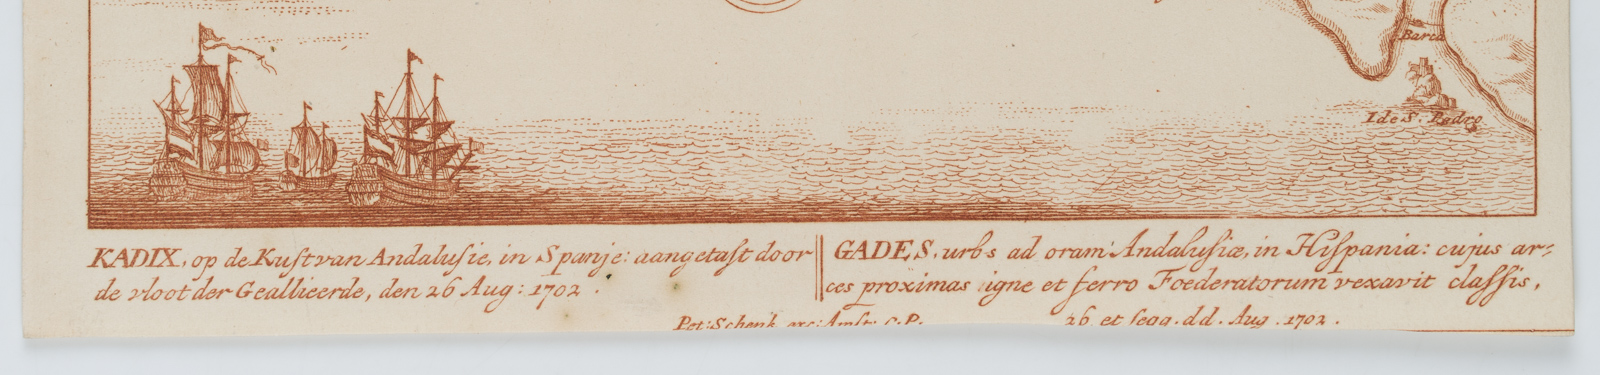 Barca
I de S. Pedro
KADIX, op de Kust van Andalusie, in Spanje: aangetast door
de vloot der Geallieerde, den 26 Aug: 1702.
GADES, urbs ad oram Andalusiæ, in Hispania: cujus ar-
ces proximas igne et ferro Foederatorum vexavit classis,
26 et seqq. dd. Aug. 1702.
Pet: Schenk exc: Amst: C. P.